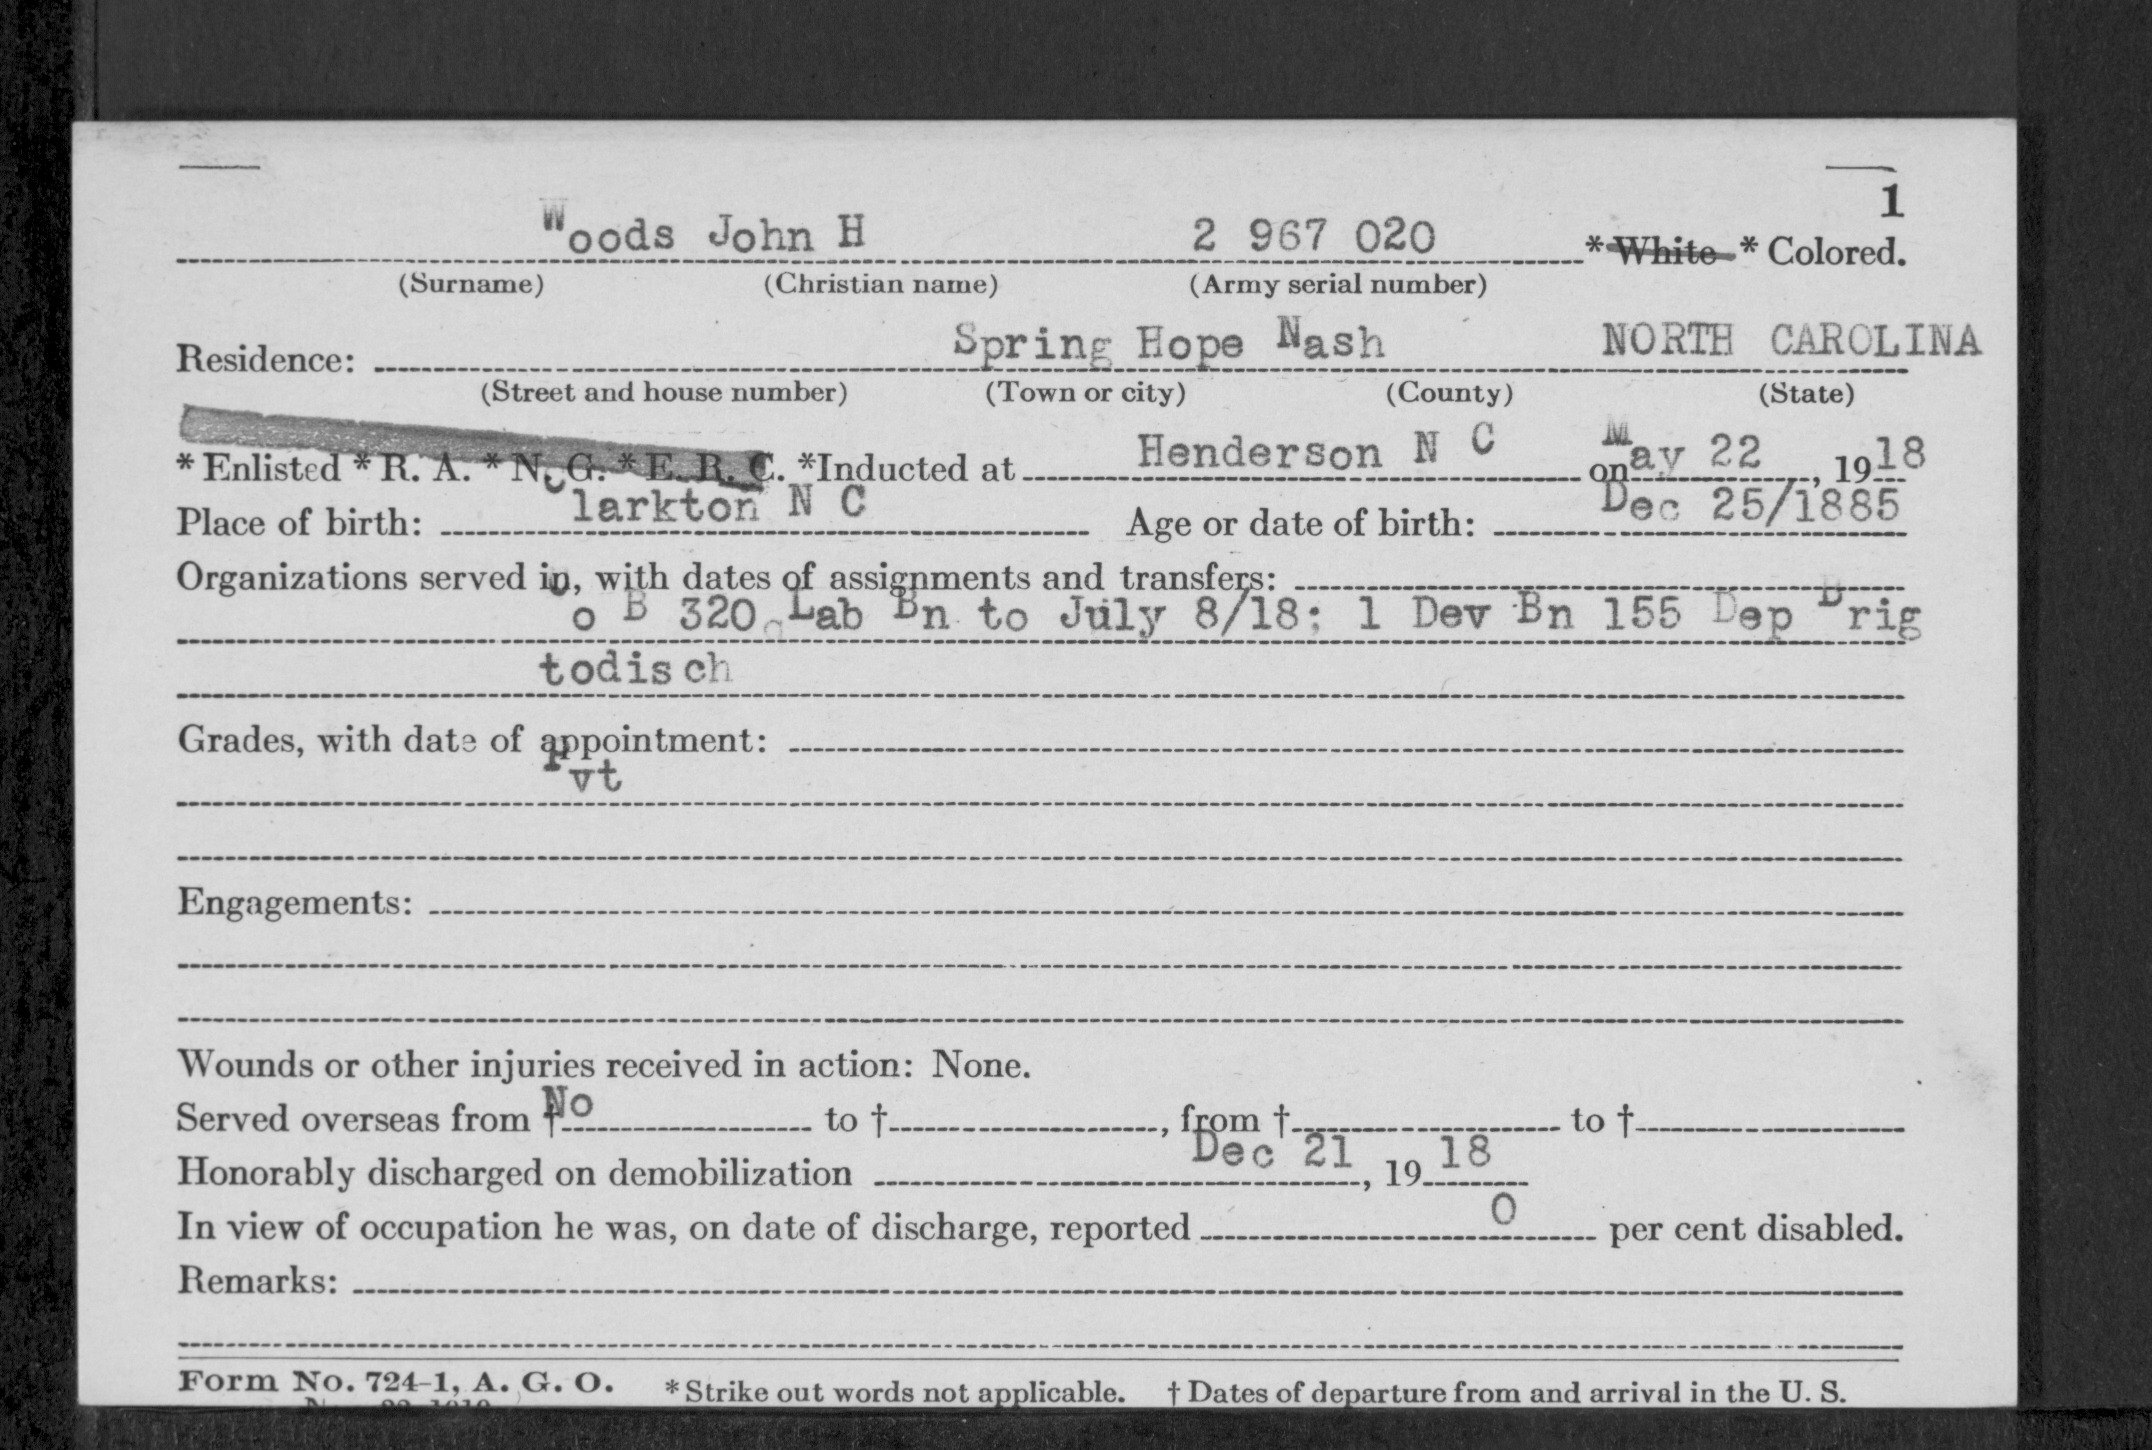 1
Woods John H 2 967 020 * White * Colored.
(Surname) (Christian name) (Army serial number)
Residence: Spring Hope Nash NORTH CAROLINA
(Street and house number) (Town or city) (County) (State)
* Enlisted * R. A. * N. G. * E. R. C. *Inducted at Henderson N C on May 22, 1918
Place of birth: Clarkton N C Age or date of birth: Dec 25/1885
Organizations served in, with dates of assignments and transfers:
Co B 320 Lab Bn to July 8/18; 1 Dev Bn 155 Dep Brig
todisch
Grades, with date of appointment:
Pvt
Engagements:
Wounds or other injuries received in action: None.
Served overseas from † No to †, from † to †
Honorably discharged on demobilization Dec 21, 1918
In view of occupation he was, on date of discharge, reported 0 per cent disabled.
Remarks:
Form No. 724-1, A. G. O. * Strike out words not applicable. † Dates of departure from and arrival in the U. S.